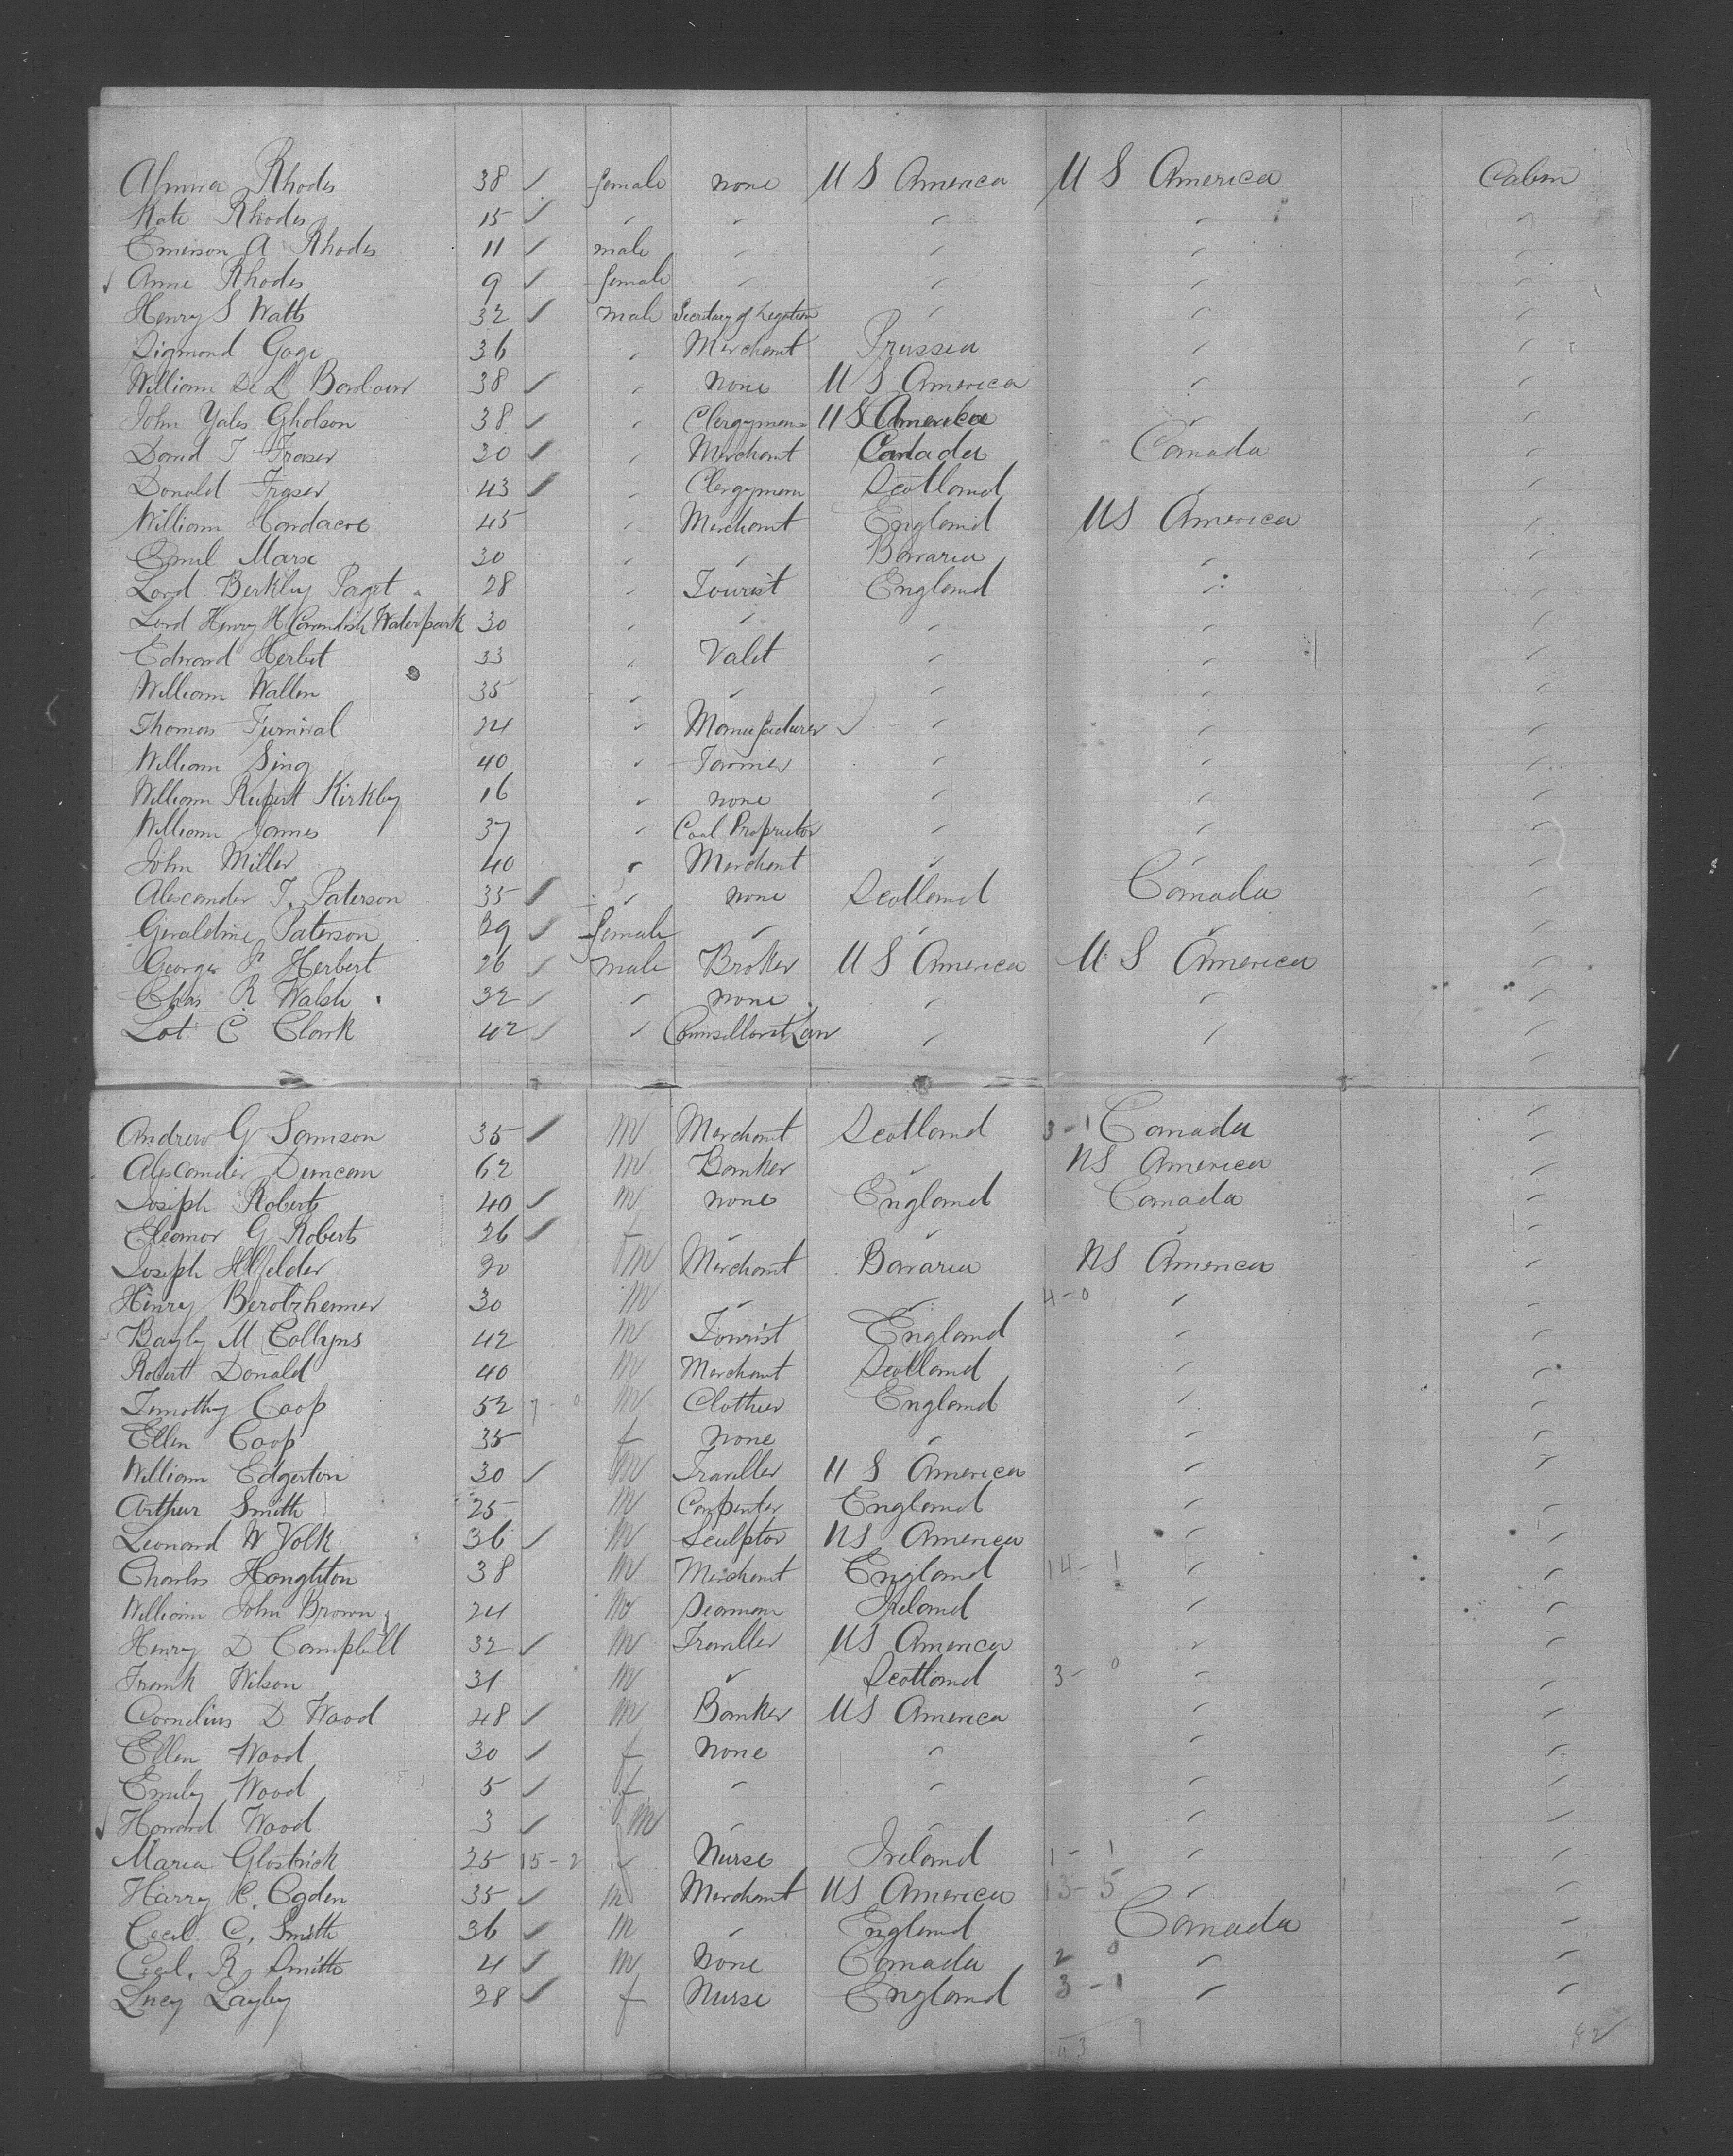 Almira Rhodes 38 ✓ female none U S America U S America Cabin
Kate Rhodes 15 ✓ " " " " "
Emerson A Rhodes 11 ✓ male " " " "
Anne Rhodes 9 ✓ female " " " "
Henry S Watts 32 ✓ male Secretary of Legation " " "
Sigmond Gage 36 " Merchant Prussia " "
William De L Barbour 38 ✓ " none U S America " "
John Yates Gholson 38 ✓ " Clergyman U S America " "
David T Fraser 30 ✓ " Merchant Canada Canada "
Donald Fraser 43 ✓ " Clergyman Scotland " "
William Handacre 45 " Merchant England US America "
Emil Marx 30 " " Bavaria " "
Lord Berkley Paget 28 " Tourist England " "
Lord Henry H Cavendish Waterpark 30 " " " " "
Edward Herbert 33 " Valet " " "
William Wallen 35 " " " " "
Thomas Furnival 24 " Manufacturer " " "
William Sing 40 " Farmer " " "
William Rupert Kirkby 16 " none " " "
William James 37 " Coal Proprietor " " "
John Miller 40 " Merchant " " "
Alexander T. Paterson 35 ✓ " none Scotland Canada "
Geraldine Paterson 29 ✓ female " " " "
George Herbert 26 ✓ male Broker U S America U S America "
Chas R Walsh 32 ✓ " none " " "
Lot C Clark 42 ✓ " Counsellor at Law " " "
Andrew G Samson 35 ✓ M Merchant Scotland 3-1 Canada "
Alexander Duncan 62 M Banker " US America "
Joseph Roberts 40 ✓ M none England Canada "
Eleanor G Roberts 26 ✓ f " " " "
Joseph Hilfelder 20 M Merchant Bavaria US America "
Henry Berolzheimer 30 M " " 4-0 " "
Bayly M Collyns 42 M Tourist England " "
Robert Donald 40 M Merchant Scotland " "
Timothy Coop 52 7-0 M Clothier England " "
Ellen Coop 35 f none " " "
William Edgerton 30 ✓ M Traveller U S America " "
Arthur Smith 25 M Carpenter England " "
Leonard W Volk 36 ✓ M Sculptor US America " "
Charles Houghton 38 M Merchant England 14-1 " "
William John Brown 24 M Seaman Ireland " "
Henry D Campbell 32 ✓ M Traveller US America " "
Frank Wilson 31 M " Scotland 3-0 " "
Cornelius D Wood 48 ✓ M Banker US America " "
Ellen Wood 30 ✓ f none " " "
Emily Wood 5 ✓ f " " " "
Howard Wood 3 ✓ M " " " "
Maria Glostrick 25 15-2 f Nurse Ireland 1-1 " "
Harry C. Ogden 35 ✓ M Merchant US America 13-5 " "
Cecil C. Smith 36 ✓ M " England Canada "
Cecil. R Smith 4 ✓ M None Canada 2 0 " "
Lucy Layby 28 ✓ f Nurse England 3-1 " "
43 9 52